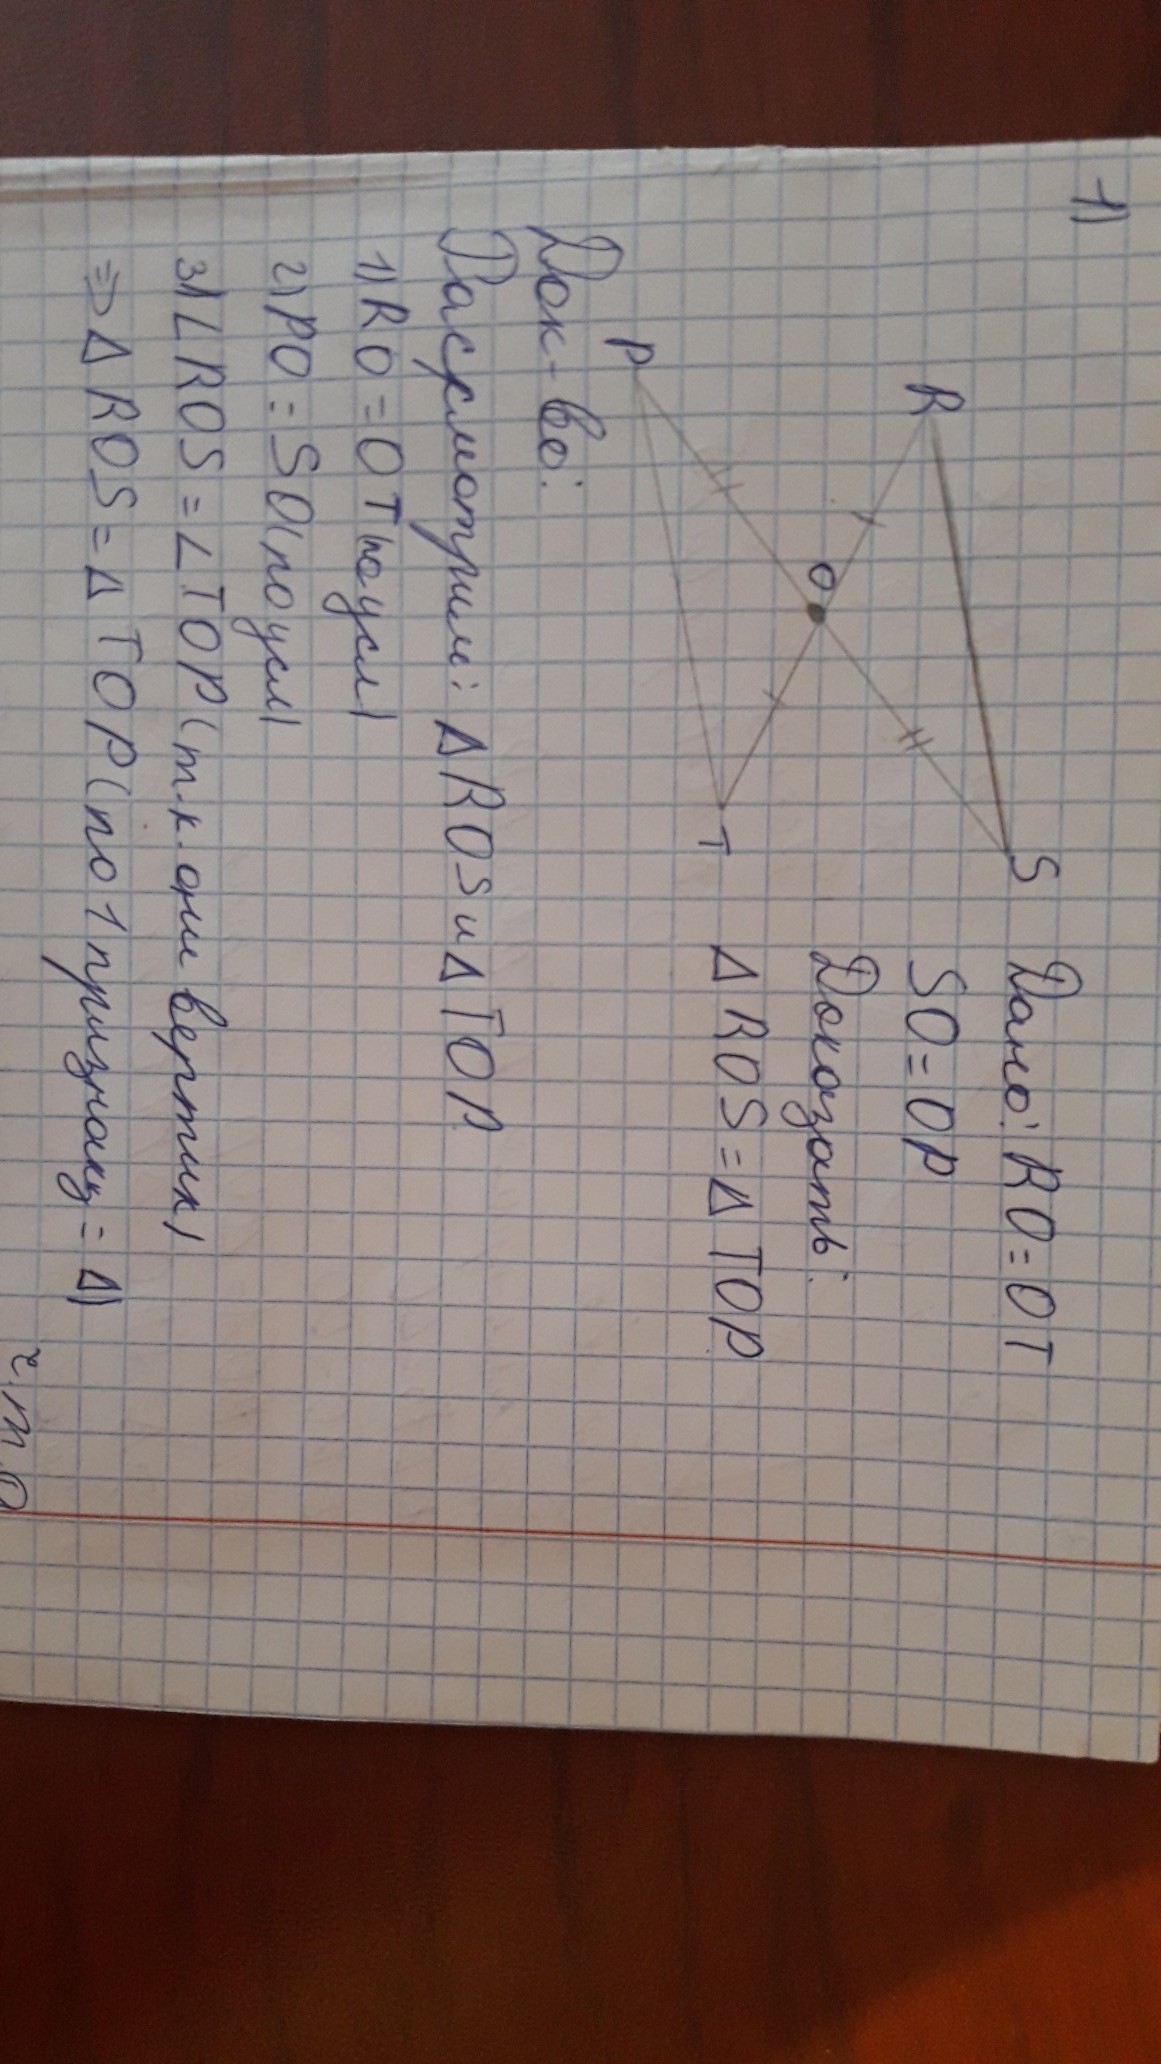 1)
R
S
O
P
T
Дано: RO = OT
SO = OP
Доказать:
Δ ROS = Δ TOP
Док-во:
Расрмотрим: Δ ROS и Δ TOP
1) RO = OT (по усл)
2) PO = SO (по усл)
3) ∠ ROS = ∠ TOP (т.к. они вертик)
=> Δ ROS = Δ TOP (по 1 признаку = Δ)
ч.т.д